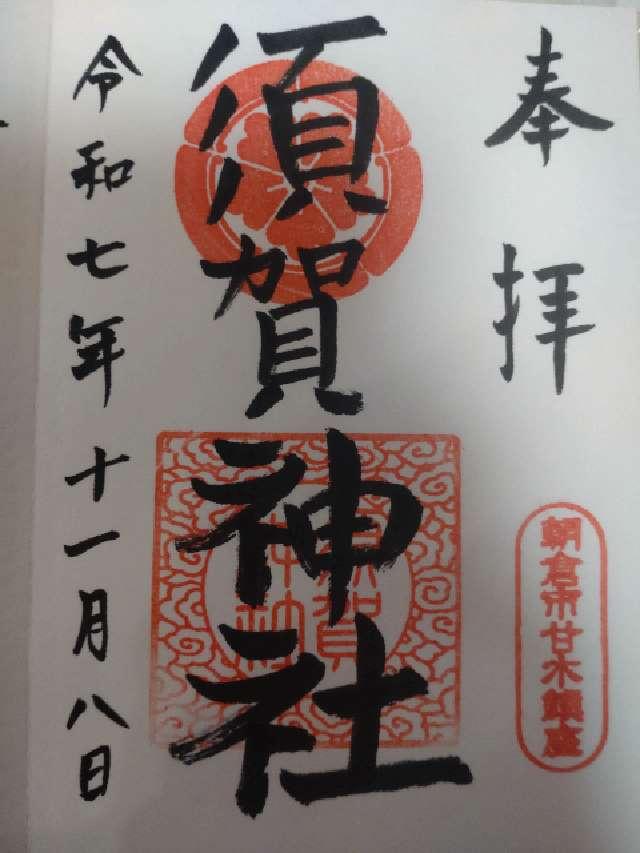 奉拝
朝倉市甘木鎮座
須賀神社
須賀
神社
令和七年十一月八日